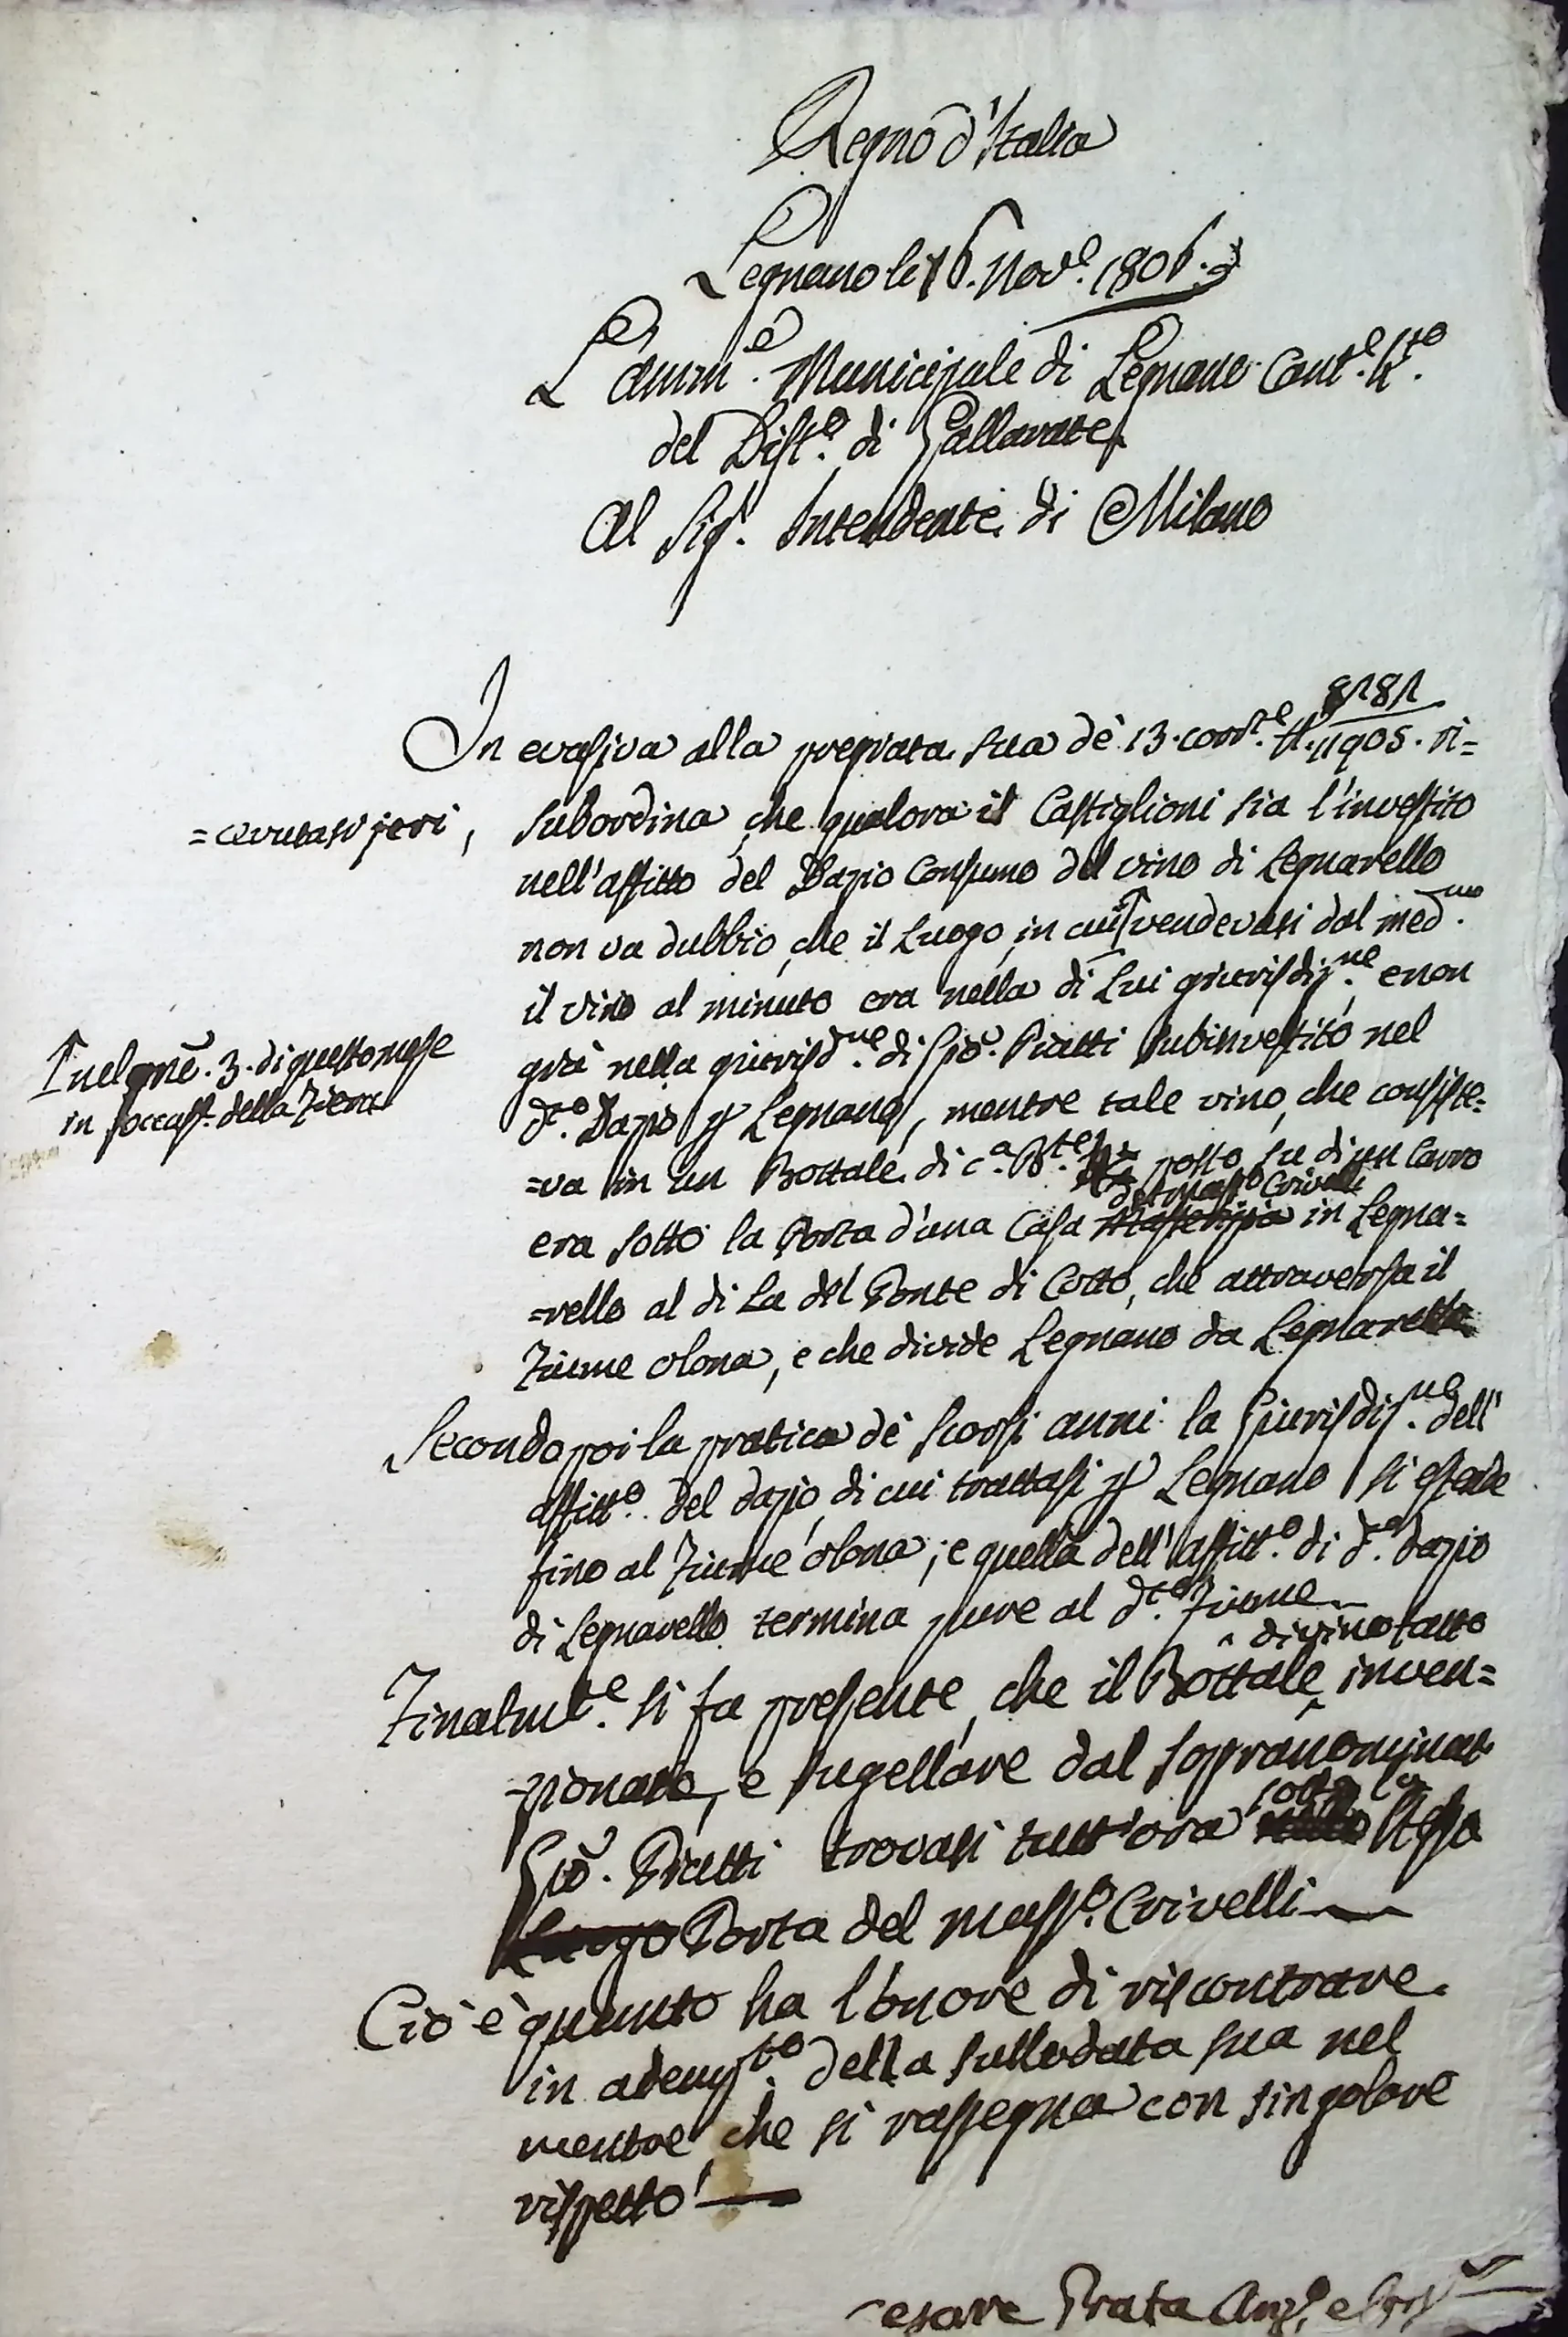 Regno d'Italia
Legnano li 16. Nov.e 1806.
L'amm.e Municipale di Legnano Cant.e 4.to
del Dist.o di Gallarate
Al Sig.r Intendente di Milano
8181
In evasiva alla pregiata sua de' 13. corr.te N. 11905. ri=
=cevutasi jeri,
subordina, che qualora il Castiglioni sia l'investito
nell'affitto del Dazio Consumo del vino di Legnarello
non va dubbio, che il Luogo, in cui vendevasi dal med.mo
il vino al minuto era nella di Lui giurisdiz.ne, e non
nel gne. 3. di questo mese
in foccas.e della Fiera
già nella giurisd.ne di Gio. Piatti subinvestito nel
d.to Dazio p Legnano, mentre tale vino, che consiste=
=va in un Bottale di c.a B.te posto su di un Carro
del mass.o Crivelli
era sotto la Porta d'una Casa in Legna=
=rello al di La del Ponte di Cotto, che attraversa il
Fiume olona, e che divide Legnano da Legnarello
Secondo poi la pratica de' scorsi anni la Giurisdiz.ne dell'
affitt.o del dazio, di cui trattasi p Legnano si estende
fino al Fiume olona; e quella dell'affitt.o di d.to dazio
di Legnarello termina pure al d.to Fiume
di vino fatto
Finalm.te si fa presente, che il Bottale inven=
=zionare, e sugellare dal sopranominat
Gio. Piatti trovasi tutt'ora sotto la stessa
Luogo Porta del mass.o Crivelli
Ciò è quanto ha l'onore di riscontrare
in ademp.to della sullodata sua nel
mentre, che si rassegna con singolare
rispetto
Cesare Prata